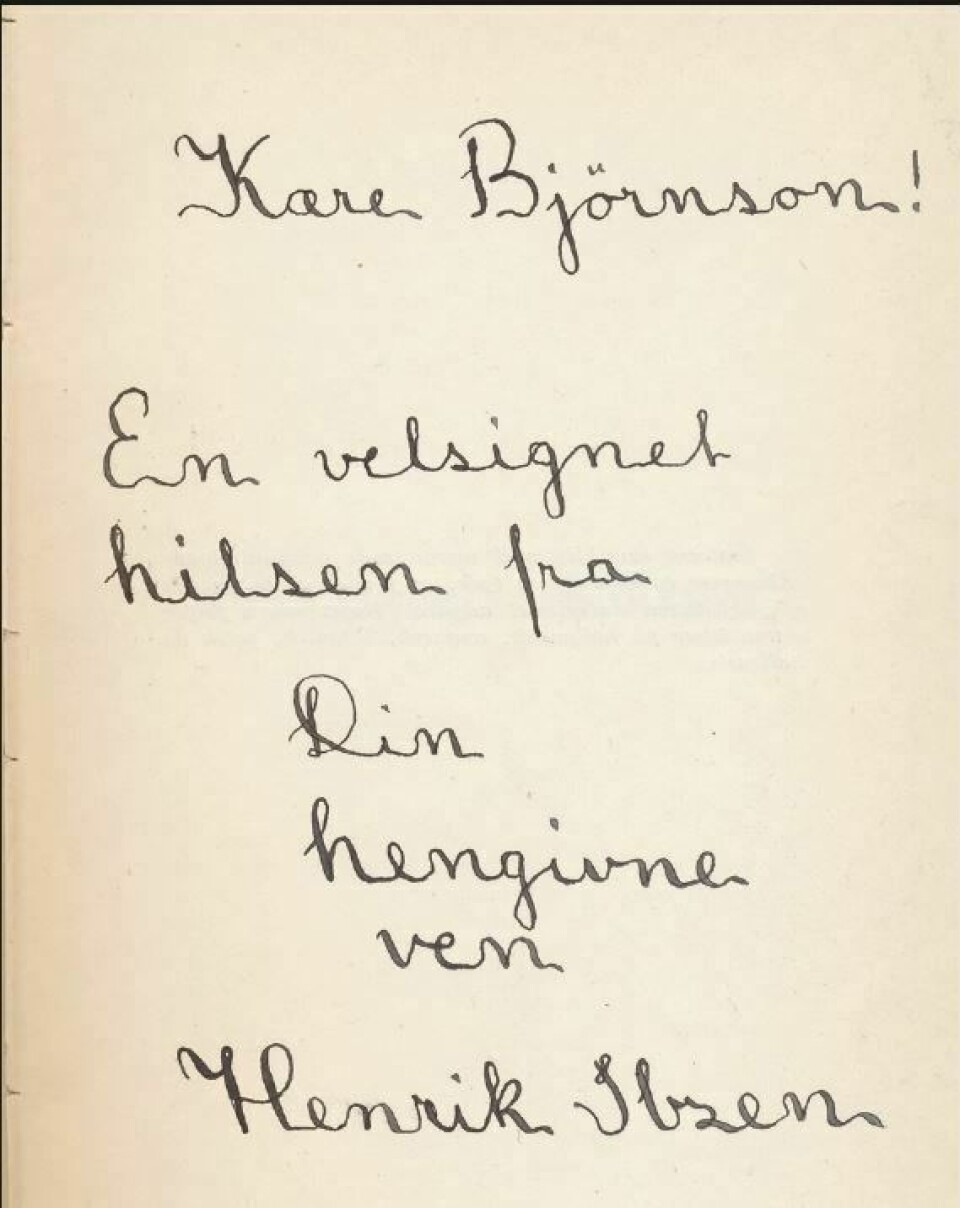 Kære Björnson!
En velsignet
hilsen fra
Din
hengivne
ven
Henrik Ibsen